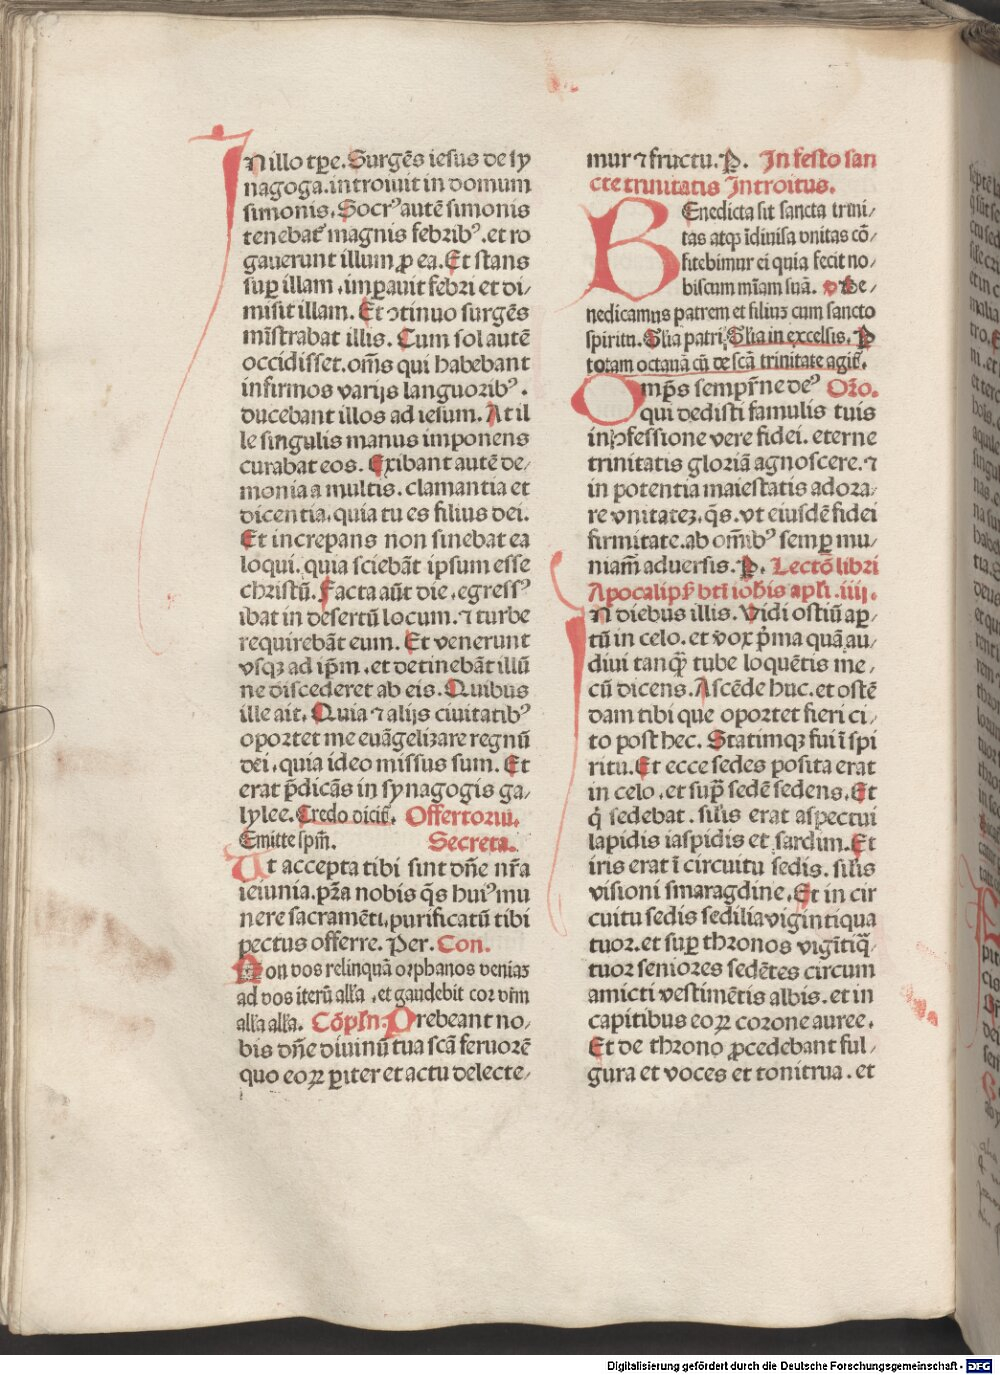 IN illo tꝑe. Surgēs iesus de sy
nagoga. introiuit in domum
simonis. Socrꝰ autē simonis
tenebat᷑ magnis febribꝰ. et ro
gauerunt illum ꝓ ea. Et stans
suꝑ illam. imꝑauit febri et di⸗
misit illam. Et ↄtinuo surgēs
mīstrabat illis. Cum sol autē
occidisset. om̄s qui habebant
infirmos varijs languoribꝰ.
ducebant illos ad iesum. At il
le singulis manus imponens
curabat eos. Exibant autē de⸗
monia a multis. clamantia et
dicentia. quia tu es filius dei.
Et increpans non sinebat ea
loqui. quia sciebāt ipsum esse
christū. Facta aūt die. egressꝰ
ibat in desertū locum. ⁊ turbe
requirebāt eum. Et venerunt
vsqꝫ ad ip̄m. et detinebāt illū
ne discederet ab eis. Quibus
ille ait. Quia ⁊ alijs ciuitatibꝰ
oportet me euāgelizare regnū
dei. quia ideo missus sum. Et
erat p̄dicās in synagogis ga⸗
lylee. Credo dicit᷑. Offertoriū.
Emitte sp̄m. Secreta.
Ut accepta tibi sint dn̄e nr̄a
ieiunia. p̄ra nobis q̄s huiꝰ mu
nere sacramēti. purificatū tibi
pectus offerre. Per. Con.
Non vos relinquā orphanos veniaꝫ
ad vos iterū all'a. et gaudebit cor vr̄m
all'a all'a. Cōpl'n. Prebeant no⸗
bis dn̄e diuinū tua scā feruorē
quo eoꝝ ꝑiter et actu delecte⸗
mur ⁊ fructu. P. In festo san
cte trinitatis Introitus.
BEnedicta sit sancta trini⸗
tas atqꝫ īdiuisa vnitas cō⸗
fitebimur ei quia fecit no⸗
biscum mīam suā. v Be⸗
nedicamus patrem et filiuꝫ cum sancto
spiritu. Gl'ia patri. Gl'ia in excelsis. P
totam octauā cū de scā trinitate agit᷑.
Omp̄s semp̄rne deꝰ Oꝛo.
qui dedisti famulis tuis
in ꝓfessione vere fidei. eterne
trinitatis gloriā agnoscere. ⁊
in potentia maiestatis adora⸗
re vnitateꝫ. q̄s. vt eiusdē fidei
firmitate. ab om̄ibꝰ semꝑ mu⸗
niam̄ aduersis. P. Lectō libri
Apocalip̄s bt̄i ioh̄is apl'i. iiij.
IN diebus illis. Vidi ostiū aꝑ⸗
tū in celo. et vox p̄ma quā au⸗
diui tanqꝫ tube loquētis me⸗
cū dicens. Ascēde huc. et ostē
dam tibi que oportet fieri ci⸗
to post hec. Statimqꝫ fui ī spi
ritu. Et ecce sedes posita erat
in celo. et suꝑ sedē sedens. Et
q̄ sedebat. sil'is erat aspectui
lapidis iaspidis et sardini. Et
iris erat ī circuitu sedis. sil'is
visioni smaragdine. Et in cir
cuitu sedis sedilia viginti qua
tuor. et suꝑ thronos vigītiq̄
tuor seniores sedētes circum
amicti vestimētis albis. et in
capitibus eoꝝ corone auree.
Et de throno ꝓcedebant ful⸗
gura et voces et tonitrua. et
Digitalisierung gefördert durch die Deutsche Forschungsgemeinschaft - DFG